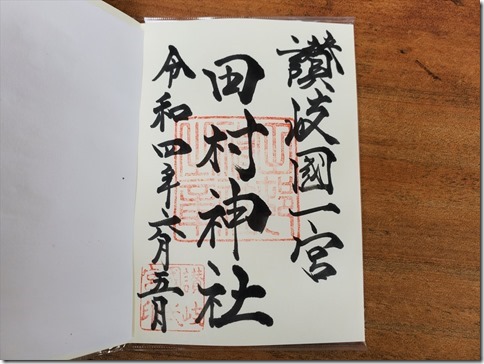 讃岐國一宮
田村神社
令和四年六月五日